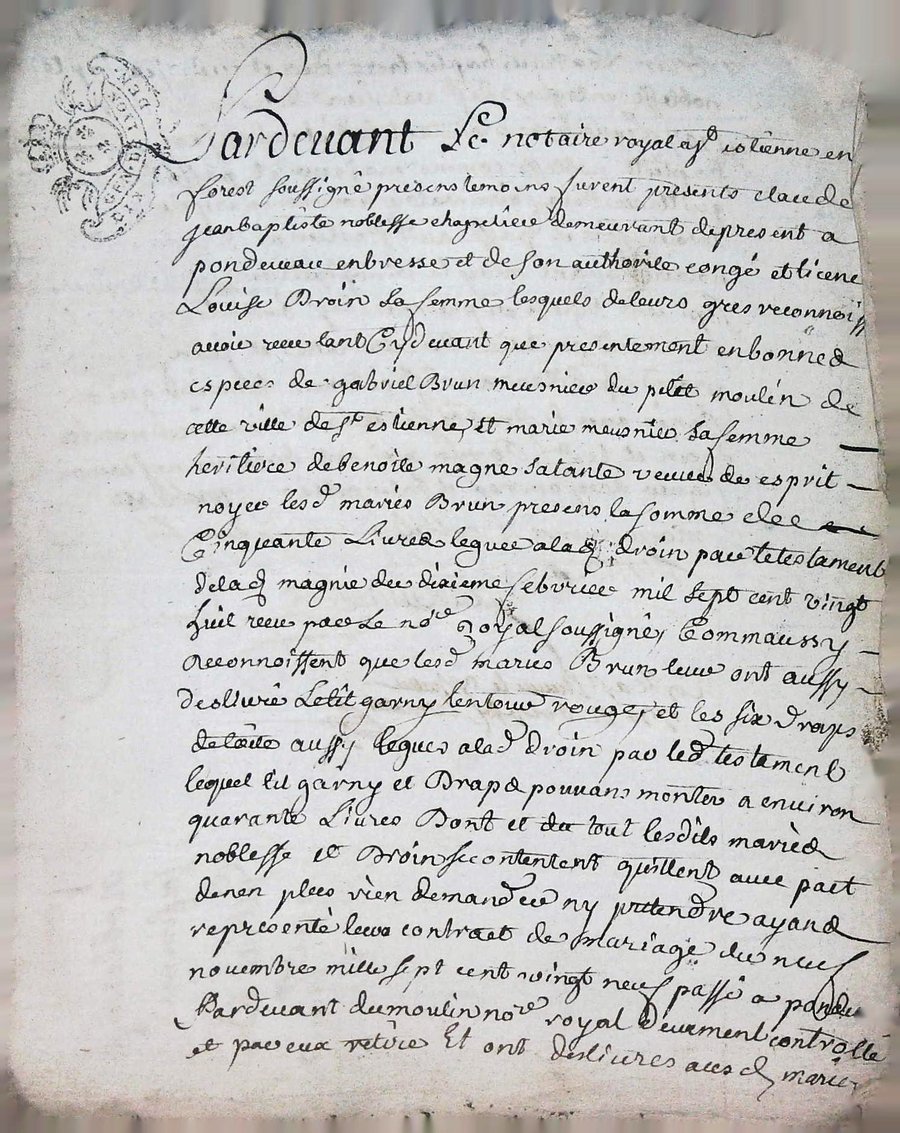 GEN. DE LION. DEN.
Pardevant Le notaire royal a st etienne en
forest soussigné presens temoins furent presents claude
jean baptiste noblesse chapelier demeurant de present a
pondeveau en bresse et de son authorite congé et licene
Louise Droin sa femme lesquels de leurs gres reconnoiss
avoir receu tant Cydevant que presentement en bonne d
especes de gabriel Brun meusnier du petit moulin de
cette ville de st estienne, et marie meusnier sa femme
heritiere de benoite magne sa tante veuve de esprit
noyer les d maries Brun presens la somme de
Cinquante Livres leguee a la d droin par le testament
de la d magnie du dixieme febvrier mil sept cent vingt
huit receu par Le nore Royal soussigné, Comm aussy
reconnoissent que les d maries Brun leur ont aussy
deslivré Le lit garny lentour rouge, et les six draps
de toile aussy legues a la d droin par le d testament
lequel lit garny et Draps pouvans monter a environ
quarante Livres Dont et du tout lesdits mariés
noblesse et Droin se contentent quittent avec pact
den en plus rien demander ny pretendre ayand
representé leur contract de mariage du neuf
novembre mille sept cent vingt neuf passé a pondv
Pardevant dumoulin nore royal Deuement controllé
et par eux retiré Et ont deslivres aus d marie